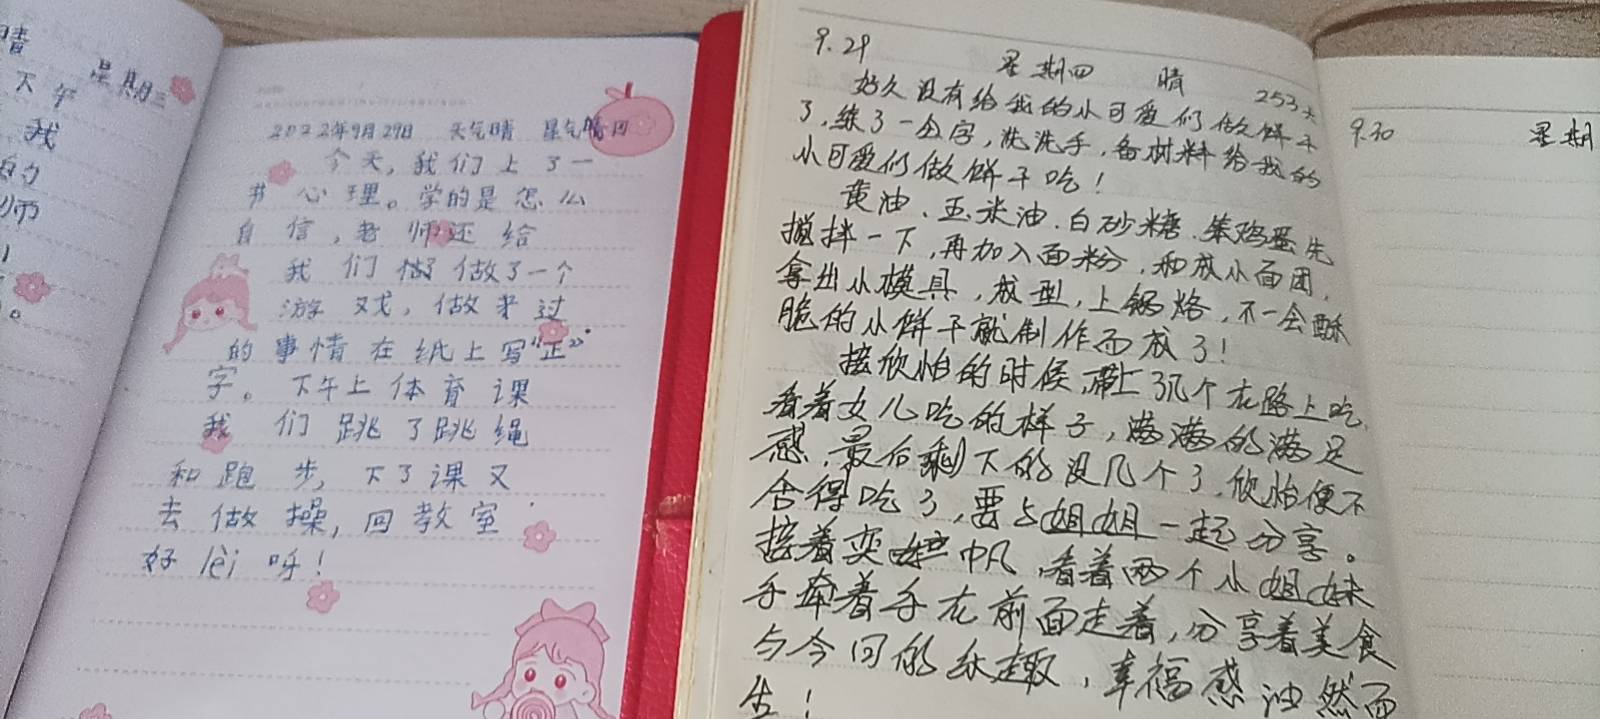 晴
星期三
下午
我
的
师
2022年9月29日 天气晴 星气晴四
今天，我们上了一
节心理。学的是怎么
自信，老师还给
我们做了一个
游戏，做来过
的事情在纸上写“正”
字。下午上体育课
我们跳了跳绳
和跑步，下了课又
去做操，回教室
好lèi呀！
9.29 星期四 晴 253天
好久没有给我的小可爱们做饼干
了，练了一会字，洗洗手，备材料给我的
小可爱们做饼干吃！
黄油、玉米油、白砂糖、柴鸡蛋先
搅拌一下，再加入面粉，和成小面团，
拿出小模具，成型，上锅烙，不一会酥
脆的小饼干就制作而成了！
接欣怡的时候，带上了几个在路上吃，
看着女儿吃的样子，满满的满足
感，最后剩下的没几个了，欣怡便不
舍得吃了，要与姐姐一起分享。
接着奕帆，看着两个小姐妹
手牵着手在前面走着，分享着美食
与今日的乐趣，幸福感油然而
生！
9.30 星期